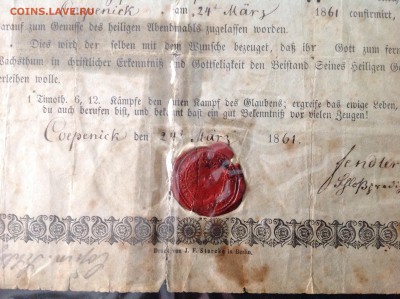 COINS.LAVE.RU
am 24t März 1861 confirmirt,
darauf zum Genusse des heiligen Abendmahls zugelassen worden.
Dies wird der selben mit dem Wunsche bezeugt, daß ihr Gott zum fern
Wachsthum in christlicher Erkenntniß und Gottseligkeit den Beistand Seines Heiligen Ge
verleihen wolle.
1 Timoth. 6, 12. Kämpfe den guten Kampf des Glaubens; ergreife das ewige Leben,
du auch berufen bist, und bekannt hast ein gut Bekenntniß vor vielen Zeugen!
Coepenick den 24t März 1861.
Fendler
Schloßpredig
Druck von J. F. Starcke in Berlin.